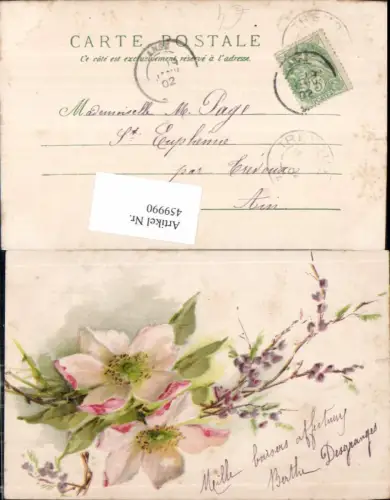 CARTE POSTALE
Ce côté est exclusivement réservé à l'adresse.
02
Mademoiselle M. Page
St Euphémie
par Trévoux
Ain
Artikel Nr.
459990
Mille baisers affectueux
Berthe Desgranges